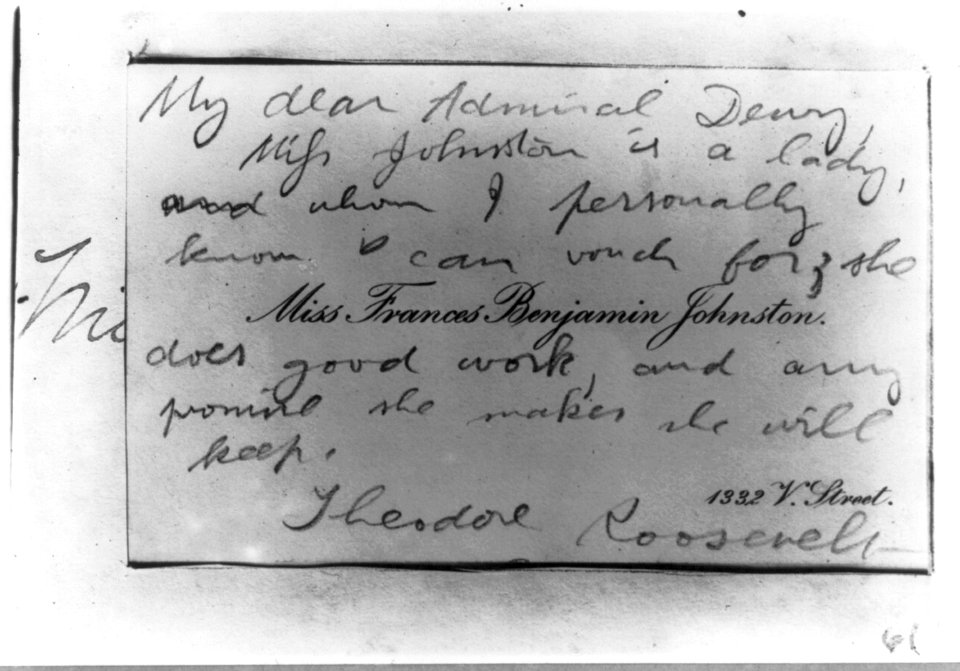 My dear Admiral Dewey,
Miss Johnston is a lady,
and whom I personally
know & can vouch for; she
Miss Frances Benjamin Johnston.
does good work, and any
promise she makes she will
keep.
1332 V. Street.
Theodore Roosevelt
61